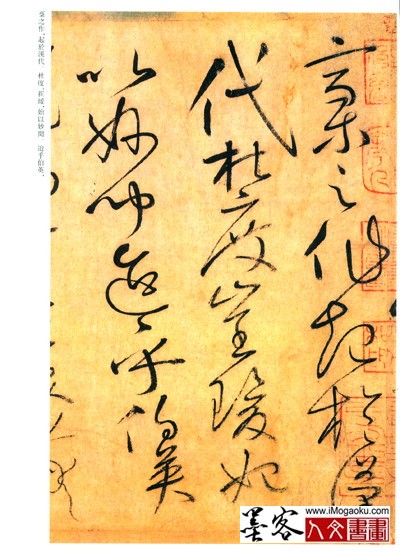 稾之作起於漢
代杜度崔瑗始
以妙聞迨乎伯英
稾之作，起於漢代、杜度、崔瑗，始以妙聞 迨乎伯英、
www.iMogaoku.com
墨客
人文書畫